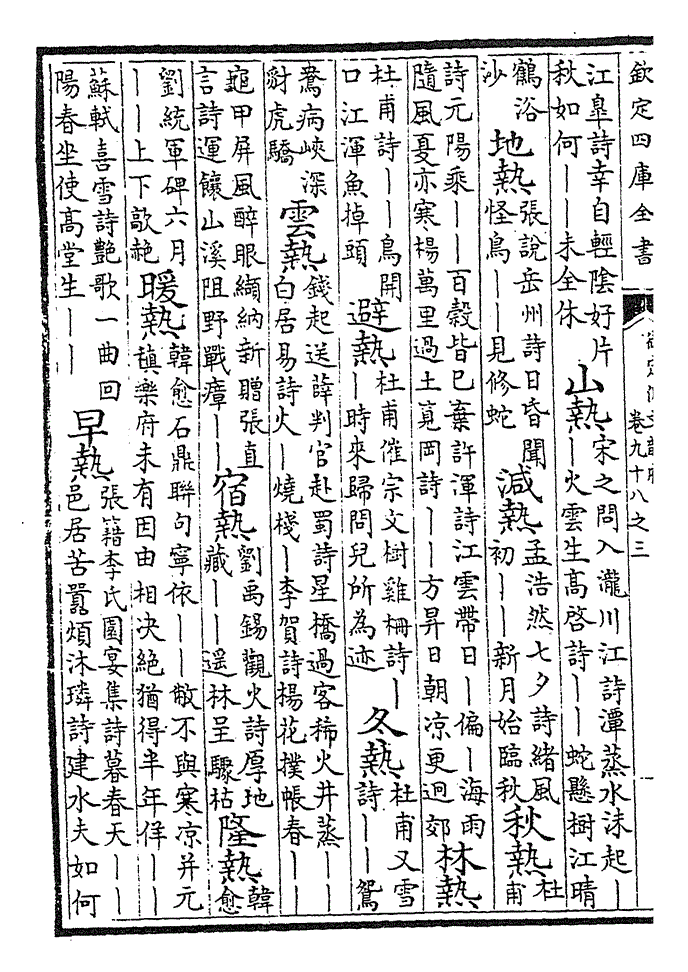 欽定四庫全書
卷九十八之三
江臯詩幸自輕陰好片
秋如何——未全休
山熱
宋之問入瀧川江詩潭蒸水沫起—
—火雲生高啓詩——蛇懸樹江晴
鶴浴
沙
地熱
張說岳州詩日昏聞
怪鳥——見修蛇
減熱
孟浩然七夕詩緒風
初——新月始臨秋
秋熱
杜
甫
詩元陽乘——百穀皆已棄許渾詩江雲帶日—偏—海雨
隨風夏亦寒楊萬里過土筧岡詩——方昇日朝凉更迥郊
林熱
杜甫詩——鳥開
口江渾魚掉頭
避熱
杜甫催宗文樹雞柵詩—
—時來歸問兒所為迹
冬熱
杜甫又雪
詩——鴛
鴦病峽深
豺虎驕
雲熱
錢起送薛判官赴蜀詩星橋過客稀火井蒸——
白居易詩火—燒棧—李賀詩楊花撲帳春——
龜甲屏風醉眼纈納新贈張直
言詩運饟山溪阻野戰瘴——
宿熱
劉禹錫觀火詩厚地
藏——遥林呈驟枯
隆熱
韓
愈
劉統軍碑六月
——上下歊赩
暖熱
韓愈石鼎聯句寧依——敝不與寒凉并元
稹樂府未有因由相决絶猶得半年佯——
蘇軾喜雪詩艶歌一曲回
陽春坐使高堂生——
早熱
張籍李氏園宴集詩暮春天——
邑居苦囂煩沐璘詩建水夫如何